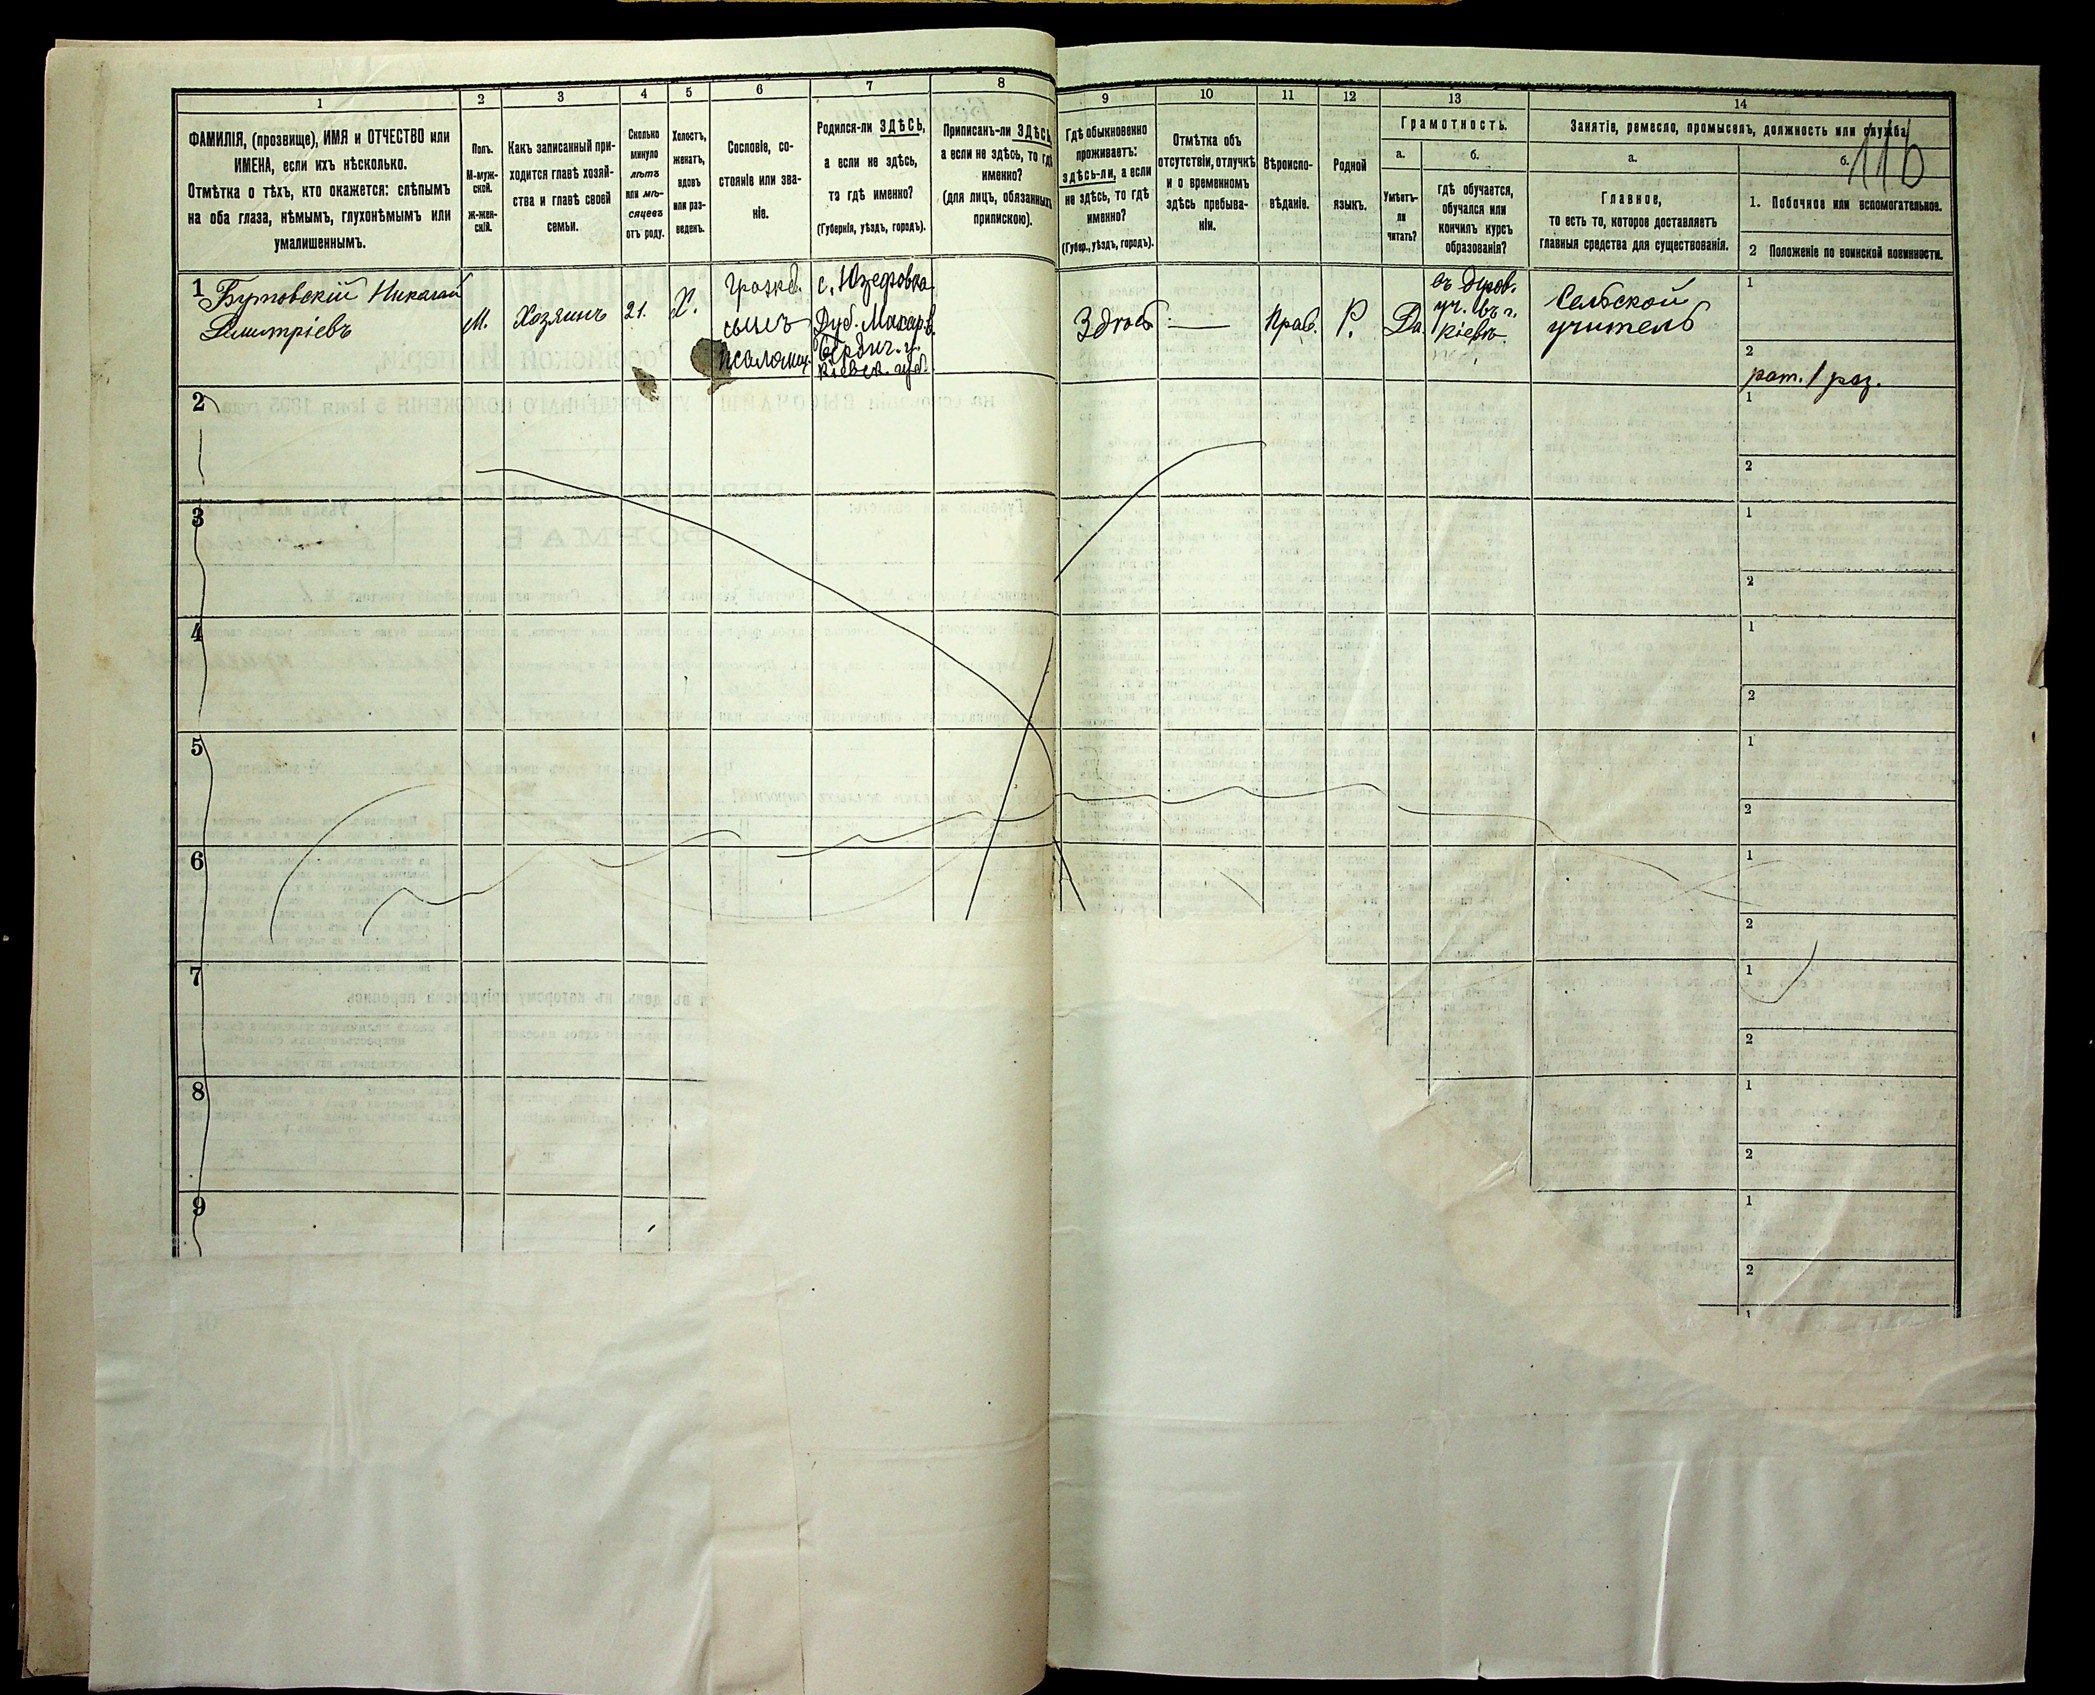 116
1
2
3
4
5
6
7
8
9
10
11
12
13
14
ФАМИЛІЯ, (прозвище), ИМЯ и ОТЧЕСТВО или
ИМЕНА, если ихъ нѣсколько.
Отмѣтка о тѣхъ, кто окажется: слѣпымъ
на оба глаза, нѣмымъ, глухонѣмымъ или
умалишеннымъ.
Полъ.
М-муж-
ской.
ж-жен-
скій.
Какъ записанный при-
ходится главѣ хозяй-
ства и главѣ своей
семьи.
Сколько
минуло
лѣтъ
или мѣ-
сяцевъ
отъ роду.
Холостъ,
женатъ,
вдовъ
или раз-
веденъ.
Сословіе, со-
стояніе или зва-
ніе.
Родился-ли ЗДѢСЬ,
а если не здѣсь,
то гдѣ именно?
(Губернія, уѣздъ, городъ).
Приписанъ-ли ЗДѢСЬ,
а если не здѣсь, то гдѣ
именно?
(для лицъ, обязанныхъ
припискою).
Гдѣ обыкновенно
проживаетъ:
здѣсь-ли, а если
не здѣсь, то гдѣ
именно?
(Губер., уѣздъ, городъ).
Отмѣтка объ
отсутствіи, отлучкѣ
и о временномъ
здѣсь пребыва-
ніи.
Вѣроиспо-
вѣданіе.
Родной
языкъ.
Грамотность.
а.
б.
Умѣетъ-
ли
читать?
гдѣ обучается,
обучался или
кончилъ курсъ
образованія?
Занятіе, ремесло, промыселъ, должность или служба.
а.
б.
Главное,
то есть то, которое доставляетъ
главныя средства для существованія.
1. Побочное или вспомогательное.
2 Положеніе по воинской повинности.
1
Бутовскій Николай
Дмитріевъ
М.
Хозяинъ
21.
Х.
сынъ
псаломщ.
с. Юзефовка
Бердич. у.
Кіевск. губ.
Здѣсь
—
Прав.
Р.
Да
въ духов.
уч. въ г.
Кіевѣ
Сельской
учитель
1
2
рат. 1 раз.
2
1
2
3
1
2
4
1
2
5
1
2
6
1
2
7
1
2
8
1
2
9
1
2
1